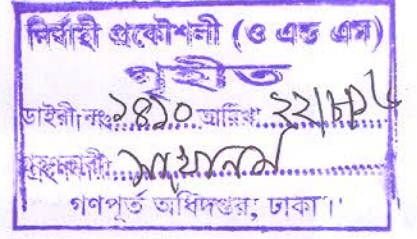 নির্বাহী প্রকৌশলী (ও এন্ড এম)
গৃহীত
ডাইরী নং ১৪১০ তারিখ ২২/৮/১৬
গ্রহণকারী
গণপূর্ত অধিদপ্তর, ঢাকা।